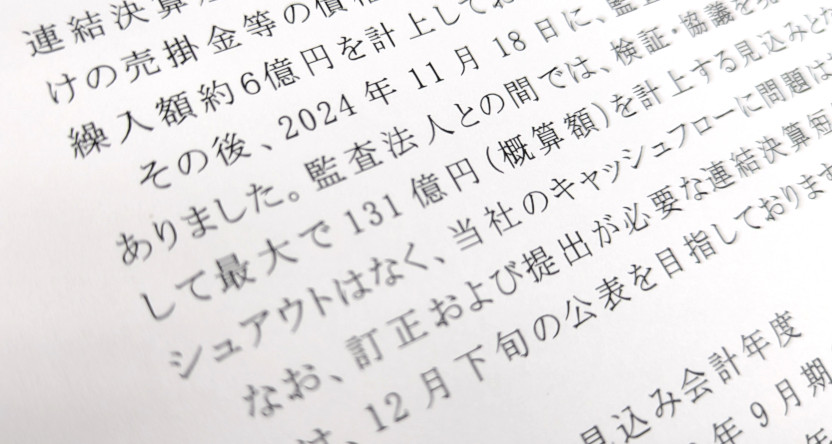 連結決算
けの売掛金等の債権
繰入額約6億円を計上してお
その後、2024年11月18日に、監査
ありました。監査法人との間では、検証・協議を
して最大で131億円(概算額)を計上する見込みとな
シュアウトはなく、当社のキャッシュフローに問題は
なお、訂正および提出が必要な連結決算短
は、12月下旬の公表を目指しております
見込み会計年度
年9月期